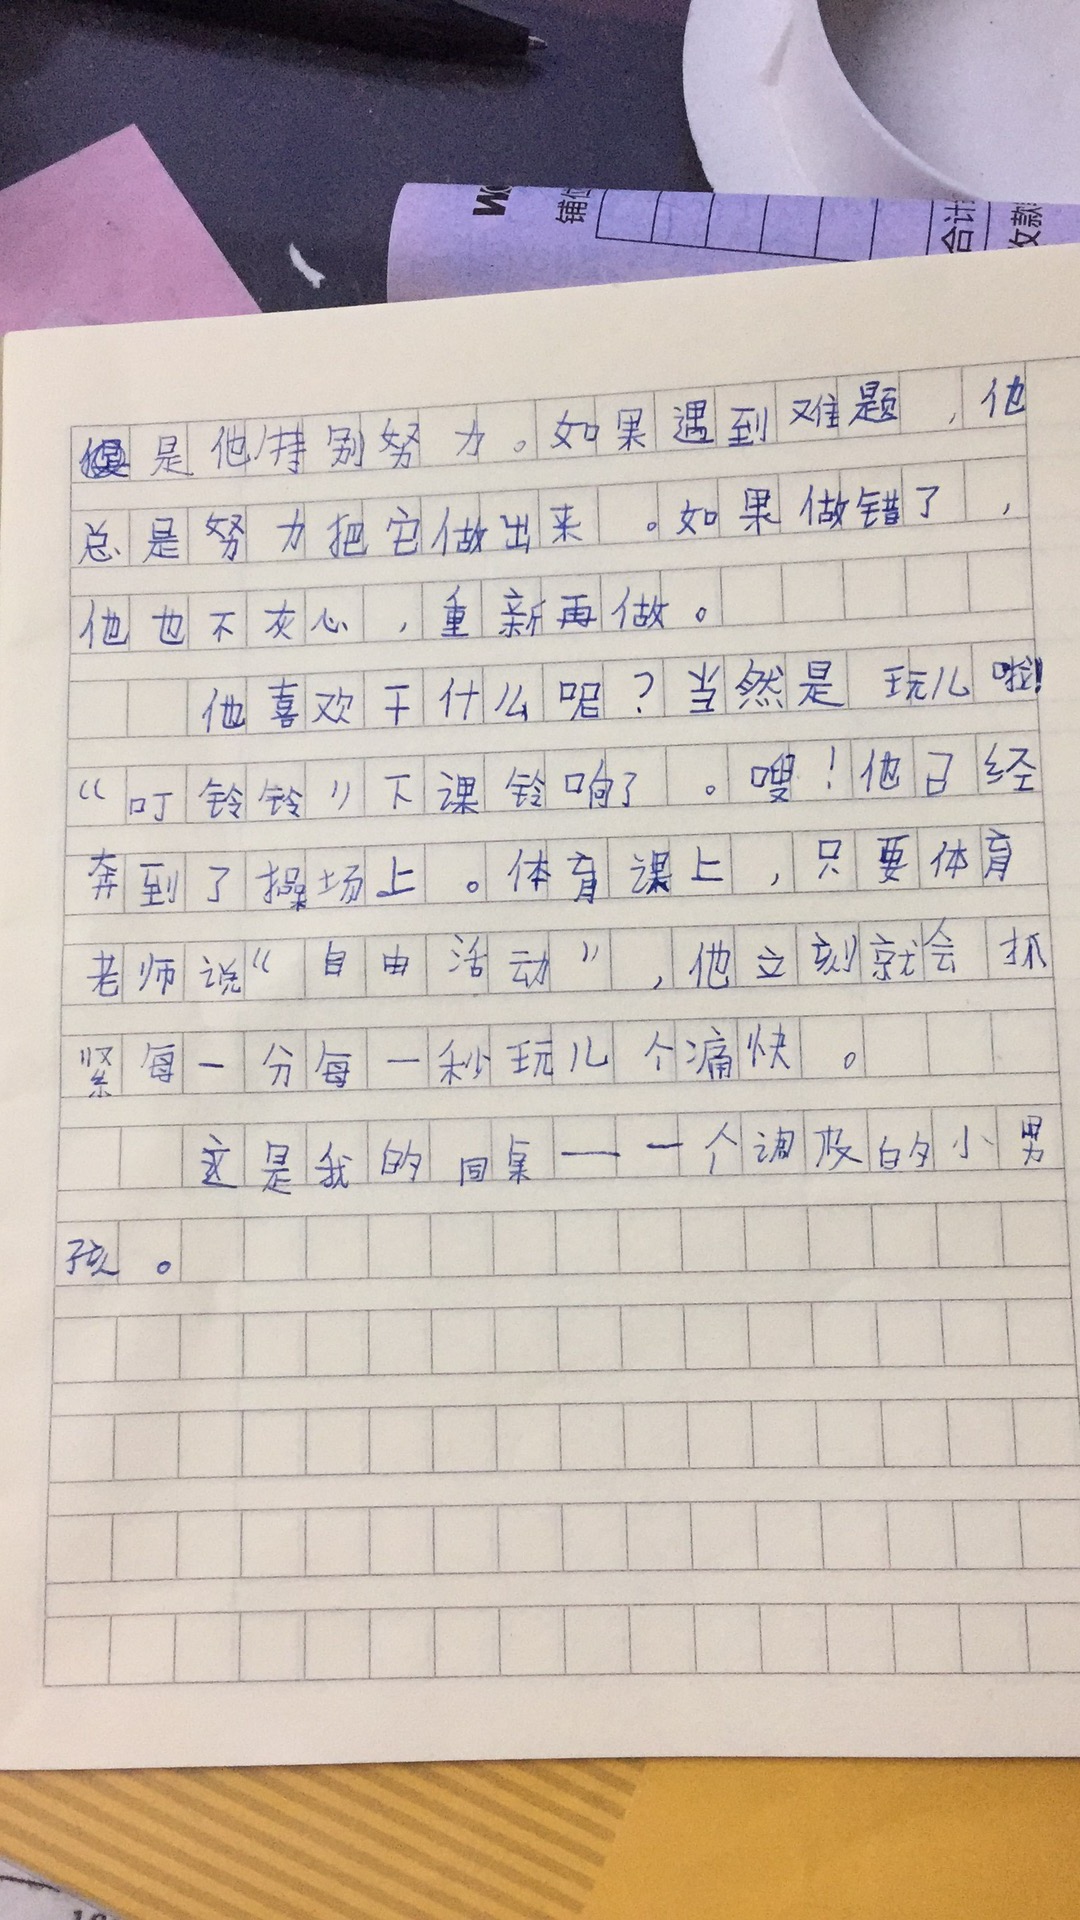 铺位
合计
收款
但是他特别努力。如果遇到难题，他
总是努力把它做出来。如果做错了，
他也不灰心，重新再做。
他喜欢干什么呢？当然是玩儿啦！
“叮铃铃”下课铃响了。嗖！他已经
奔到了操场上。体育课上，只要体育
老师说“自由活动”，他立刻就会抓
紧每一分每一秒玩儿个痛快。
这是我的同桌——一个调皮的小男
孩。